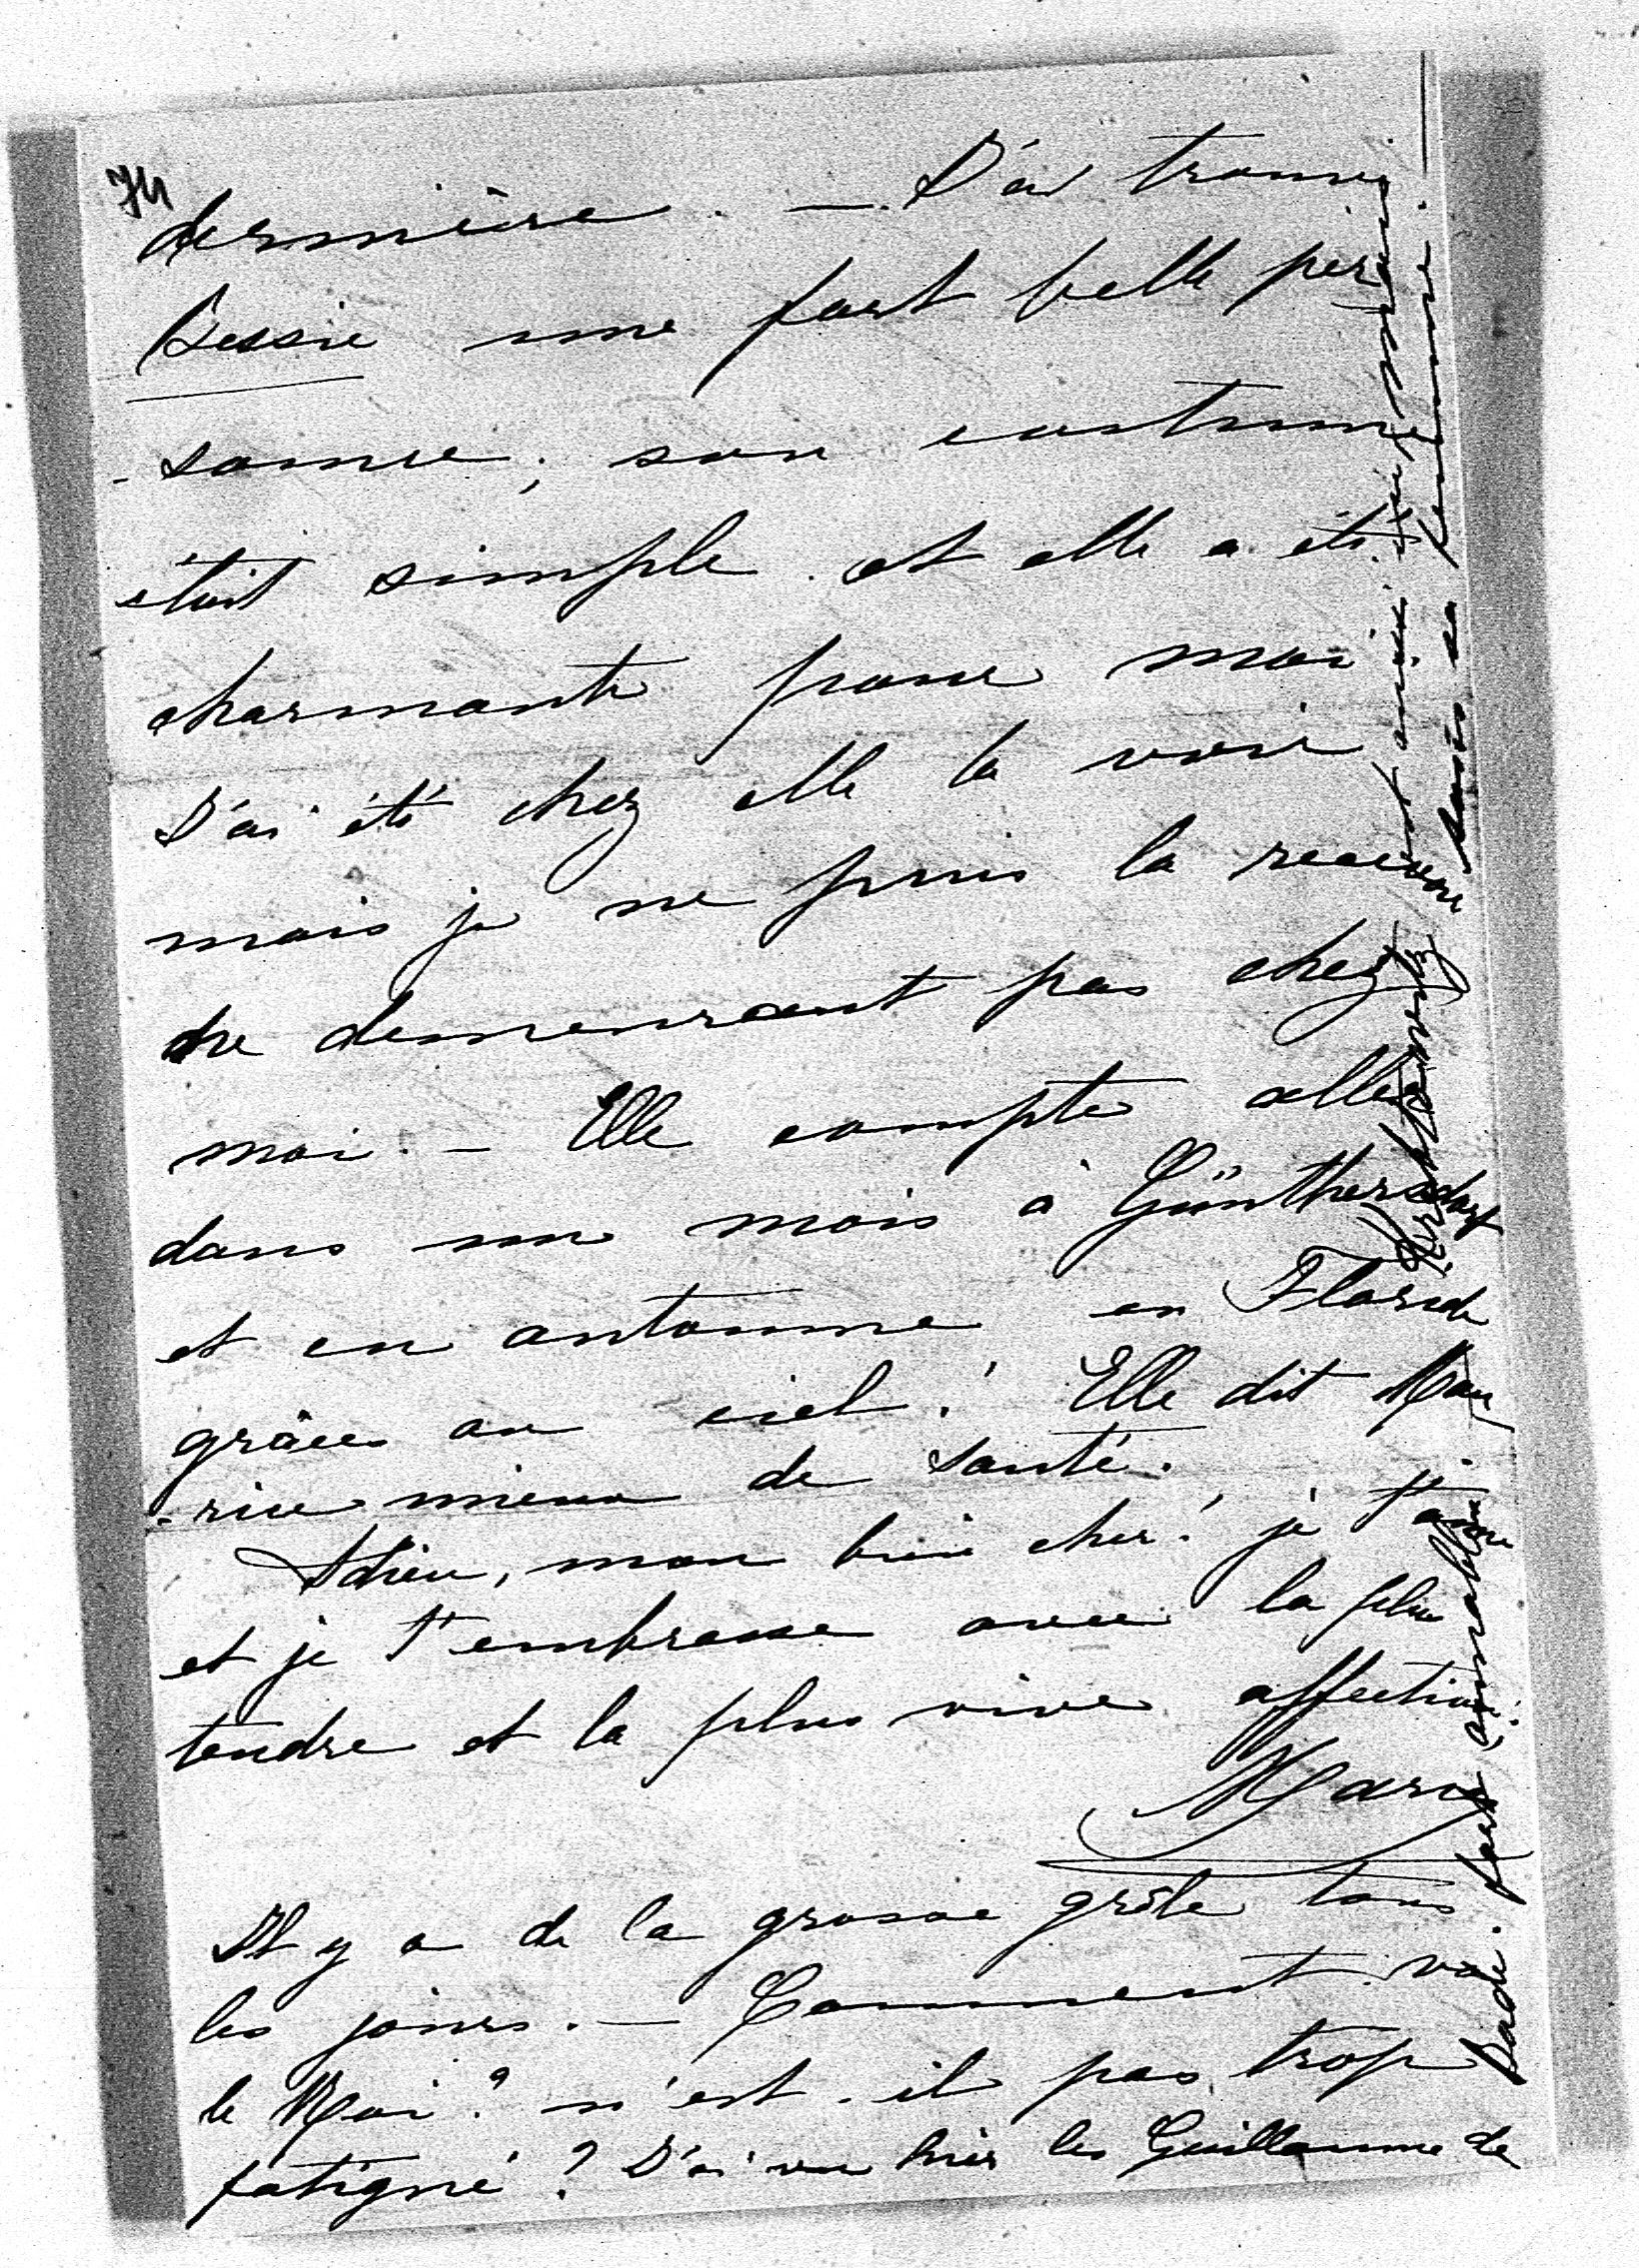 74
dernière. — J'ai trouvé
Bessie une fort belle per
-sonne, son costume
était simple et elle a été
charmante pour moi
J'ai été chez elle la voir
mais je ne puis la recevoir
ne demeurant pas chez
moi. — Elle compte aller
dans un mois à Günthersdorf
et en automne en Floride
grâces au ciel! Elle dit Mau
-rice mieux de santé.
Adieu, mon bien cher! je t'aime
et je t'embrasse avec la plus
tendre et la plus vive affection!
Il y a de la grosse grêle tous
les jours. — Comment va
le Roi? n'est-il pas trop
fatigué? J'ai vu hier les Guillaume de
Bade. fort aimables.